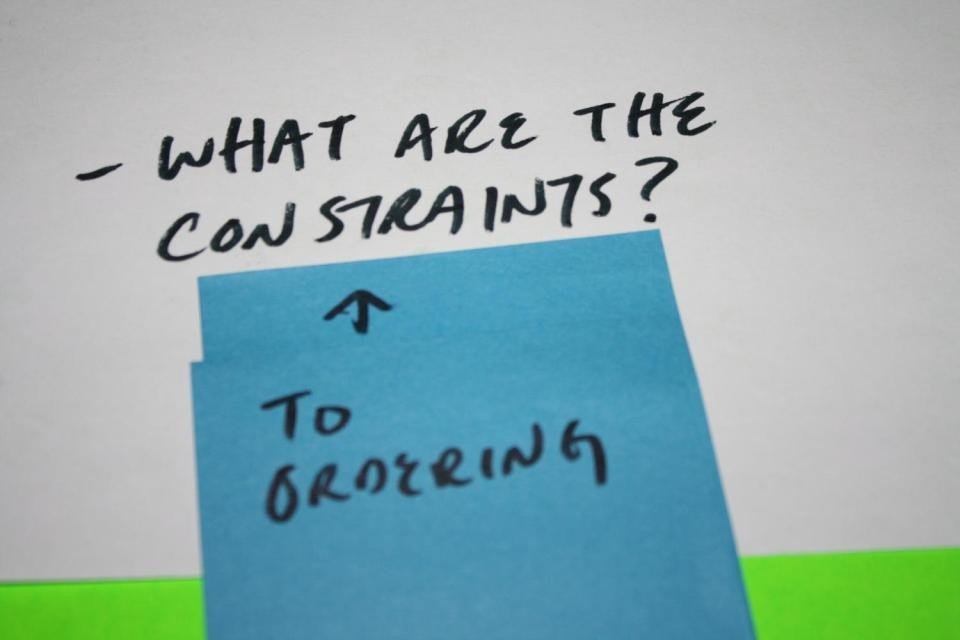 - WHAT ARE THE
CONSTRAINTS?
↑
TO
ORDERING